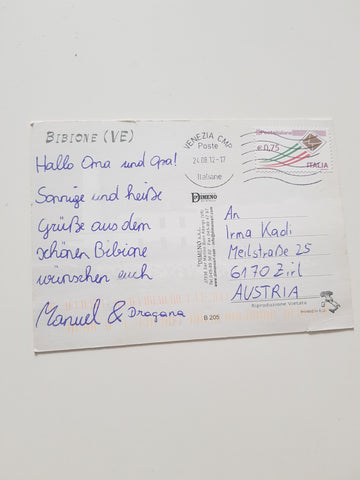 BIBIONE (VE)
Hallo Oma und Opa!
Sonnige und heiße
Grüße aus dem
schönen Bibione
wünschen euch
Manuel & Dragana
VENEZIA CMP
Poste
24.08.12-17
Italiane
Posteitaliane
€ 0,75
ITALIA
DIMENO
An
Irma Kadi
Meilstraße 25
6170 Zirl
AUSTRIA
Riproduzione Vietata
B 205